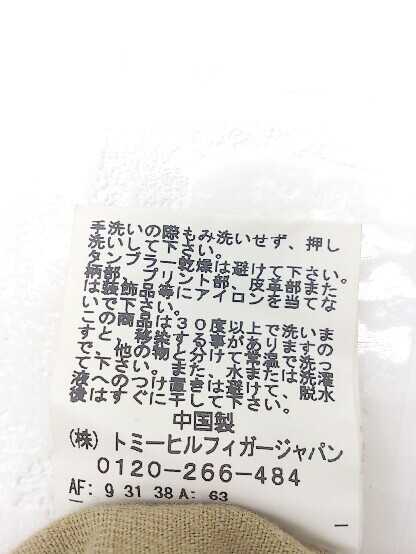 手洗いの際もみ洗いせず、押し
洗いして下さい。
タンブラー乾燥は避けて下さい。
柄部、プリント部、皮革部また
は装飾品等にアイロンを当てな
いで下さい。
この商品は３０度以上で洗いま
すと、移染する事がありますの
で、他の物と分けて常温で洗っ
て下さい。また、水または洗濯
液へのつけ置きは避けて、脱水
後はすぐに干して下さい。
中国製
(株) トミーヒルフィガージャパン
0120-266-484
AF: 9 31 38 A: 63